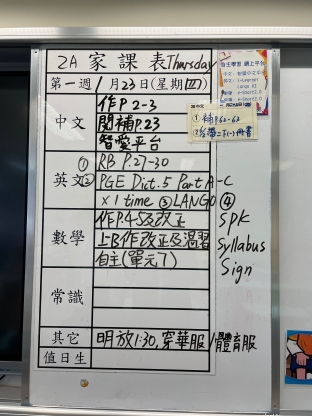 2A 家課表 Thursday
第一週 1月23日(星期四)
中文
作P.2-3
閱補P.23
智愛平台
① 補P.62-63
英文
① RB P.27-30
② PGE Dict.5 Part A-C
x1 time ③ LANGO ④
SPK
Syllabus
Sign
數學
作P.45及改正
上B作改正及溫習
自主(單元7)
常識
其它
明放1:30,穿華服/體育服
值日生
自主學習 網上平台